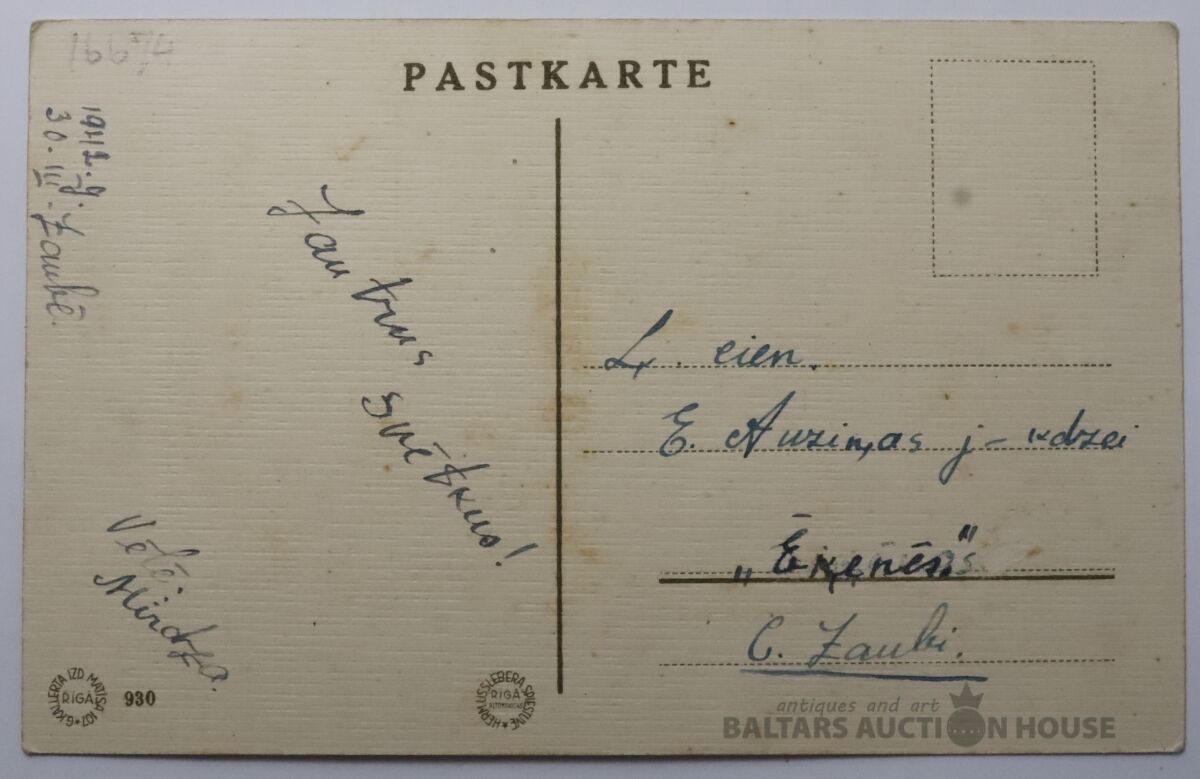 166 I/4
PASTKARTE
1942. g.
30. III. Zaubē.
Jautrus
svētkus!
Vēlē
Mirdza.
Ļ. cien.
E. Auziņas j-kdzei
„Ēķēnēs"
C. Zaubi.
G. KALLERTA IZD. MATĪSA 107
RĪGĀ
930
HERM. USSLEBERA SPIESTUVE
RĪGĀ
antiques and art
BALTARS AUCTION HOUSE